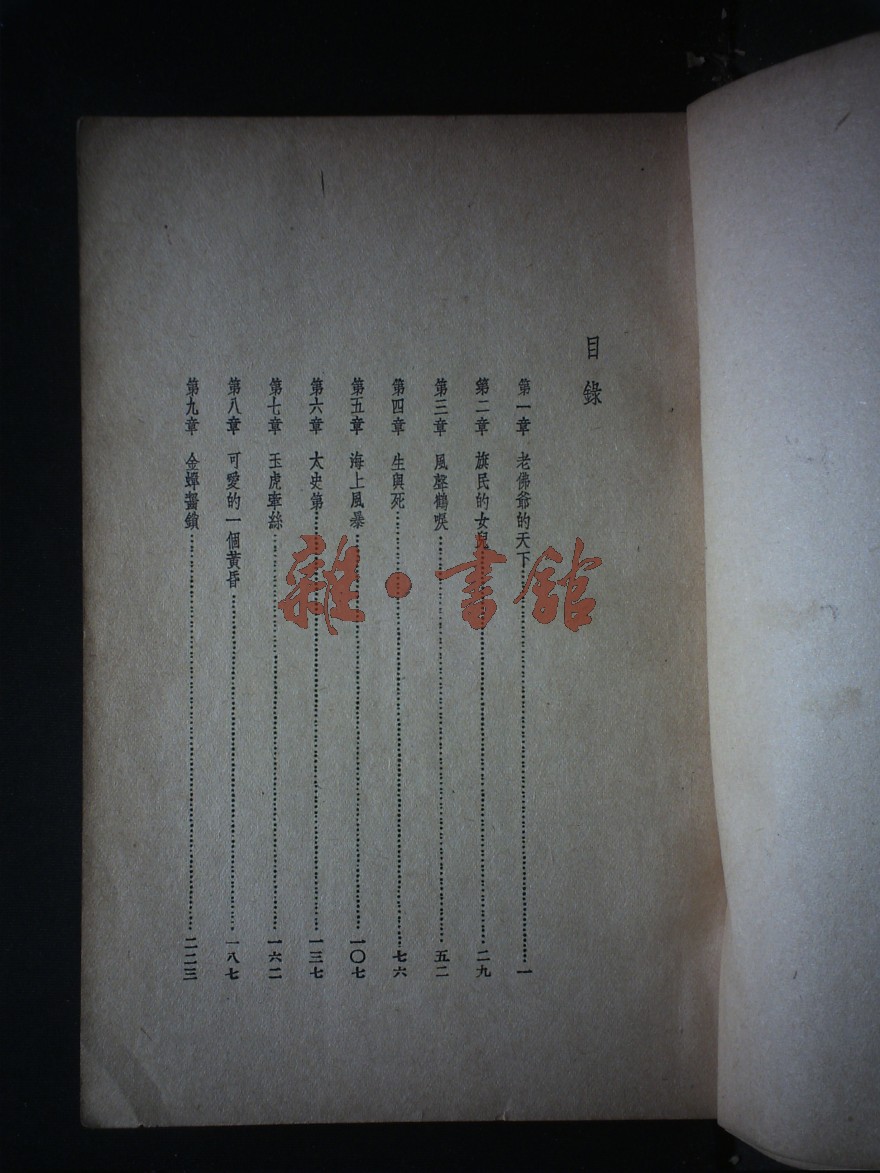 目錄
第一章 老佛爺的天下 一
第二章 旗民的女兒 二九
第三章 風聲鶴唳 五二
第四章 生與死 七六
第五章 海上風暴 一〇七
第六章 太史第 一三七
第七章 玉虎牽絲 一六二
第八章 可愛的一個黃昏 一八七
第九章 金蟬齧鎖 二二三
雜·書館